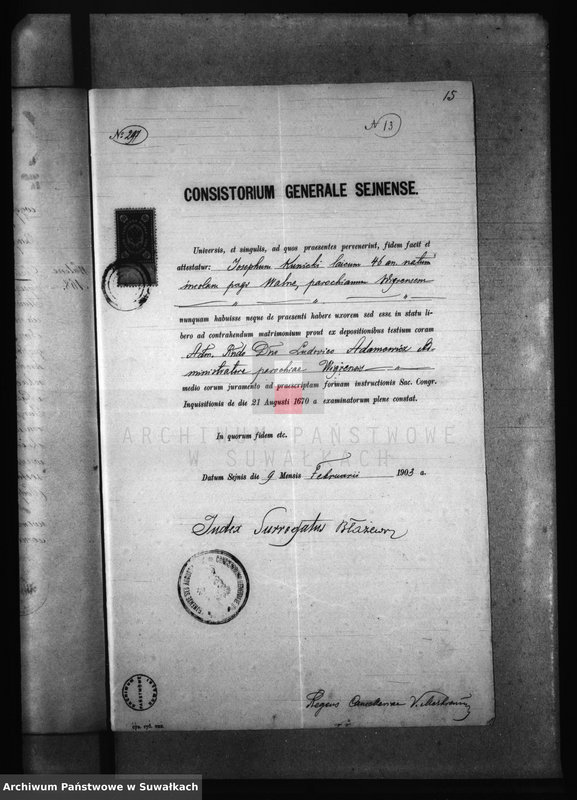 15
№ 297
N 13
CONSISTORIUM GENERALE SEJNENSE.
Universis, et singulis, ad quos praesentes pervenerint, fidem facit et
attestatur: Josephum Kunicki laicum 46 an. natum
incolam pagi Walne, parochianum Vigrensem
nunquam habuisse neque de praesenti habere uxorem sed esse in statu li-
bero ad contrahendum matrimonium prout ex depositionibus testium coram
Adm. Rndo Dno Ludovico Adamowicz Ad-
ministratore parochiae Vigrensis
medio eorum juramento ad praescriptam formam instructionis Sac. Congr.
Inquisitionis de die 21 Augusti 1670 a examinatorum plene constat.
In quorum fidem etc.
Datum Sejnis die 9 Mensis Februarii 1903 a.
Judex Surrogatus Błażewicz
Regens Cancellariae V.
ARCHIWUM PAŃSTWOWE
W SUWAŁKACH
Archiwum Państwowe w Suwałkach